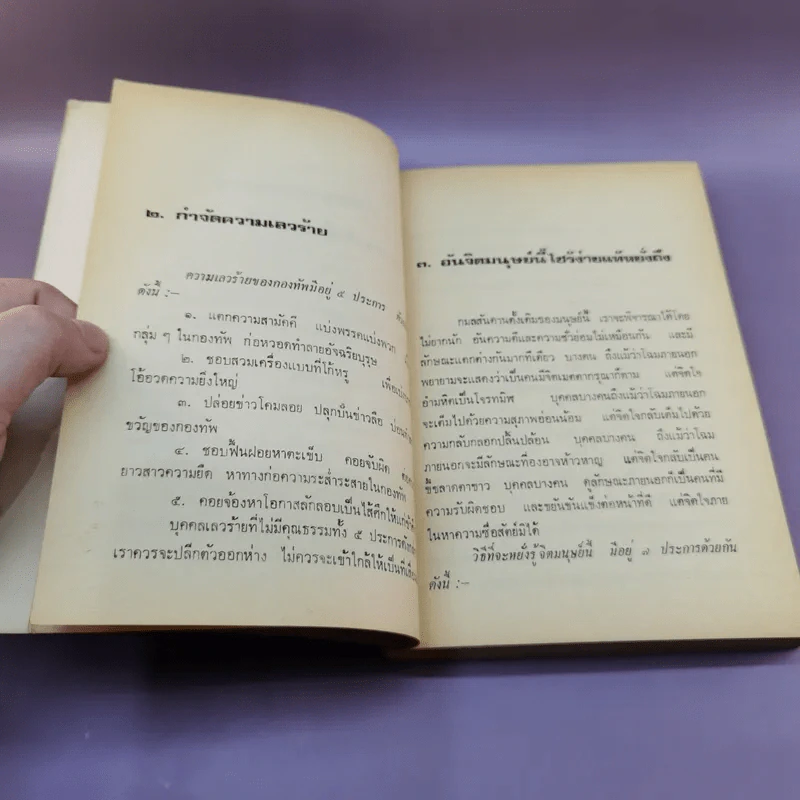 ๒. กำจัดความเลวร้าย
ความเลวร้ายของกองทัพมีอยู่ ๕ ประการ
ดังนี้ :—
๑. แตกความสามัคคี แบ่งพรรคแบ่งพวก
กลุ่ม ๆ ในกองทัพ ก่อหวอดทำลายอัจฉริยบุรุษ
๒. ชอบสวมเครื่องแบบที่โก้หรู
โอ้อวดความยิ่งใหญ่
๓. ปล่อยข่าวโคมลอย ปลุกปั่นข่าวลือ
ขวัญของกองทัพ
๔. ชอบฟื้นฝอยหาตะเข็บ คอยจับผิด
ยาวสาวความยืด หาทางก่อความระส่ำระสายในกองทัพ
๕. คอยจ้องหาโอกาสลักลอบเป็นไส้ศึกให้แก่
บุคคลเลวร้ายที่ไม่มีคุณธรรมทั้ง ๕ ประการ
เราควรจะปลีกตัวออกห่าง ไม่ควรจะเข้าใกล้ให้เป็นที่
๓. อันจิตมนุษย์นี้ไซร้ง่ายแท้หยั่งถึง
กมลสันดานดั้งเดิมของมนุษย์นี้ เราจะพิจารณาได้โดย
ไม่ยากนัก อันความดีและความชั่วย่อมไม่เหมือนกัน และมี
ลักษณะแตกต่างกันมากทีเดียว บางคน ถึงแม้ว่าโฉมภายนอก
พยายามจะแสดงว่าเป็นคนมีจิตเมตตากรุณาก็ตาม แต่จิตใจ
อำมหิตเป็นโจรทมิฬ บุคคลบางคนถึงแม้ว่าโฉมภายนอก
จะเต็มไปด้วยความสุภาพอ่อนน้อม แต่จิตใจกลับเต็มไปด้วย
ความกลับกลอกปลิ้นปล้อน บุคคลบางคน ถึงแม้ว่าโฉม
ภายนอกจะมีลักษณะที่องอาจห้าวหาญ แต่จิตใจกลับเป็นคน
ขี้ขลาดตาขาว บุคคลบางคน ดูลักษณะภายนอกก็เป็นคนที่มี
ความรับผิดชอบ และขยันขันแข็งต่อหน้าที่ดี แต่จิตใจภาย
ในหาความซื่อสัตย์มิได้
วิธีที่จะหยั่งรู้จิตมนุษย์นี้ มีอยู่ ๗ ประการด้วยกัน
ดังนี้ :—